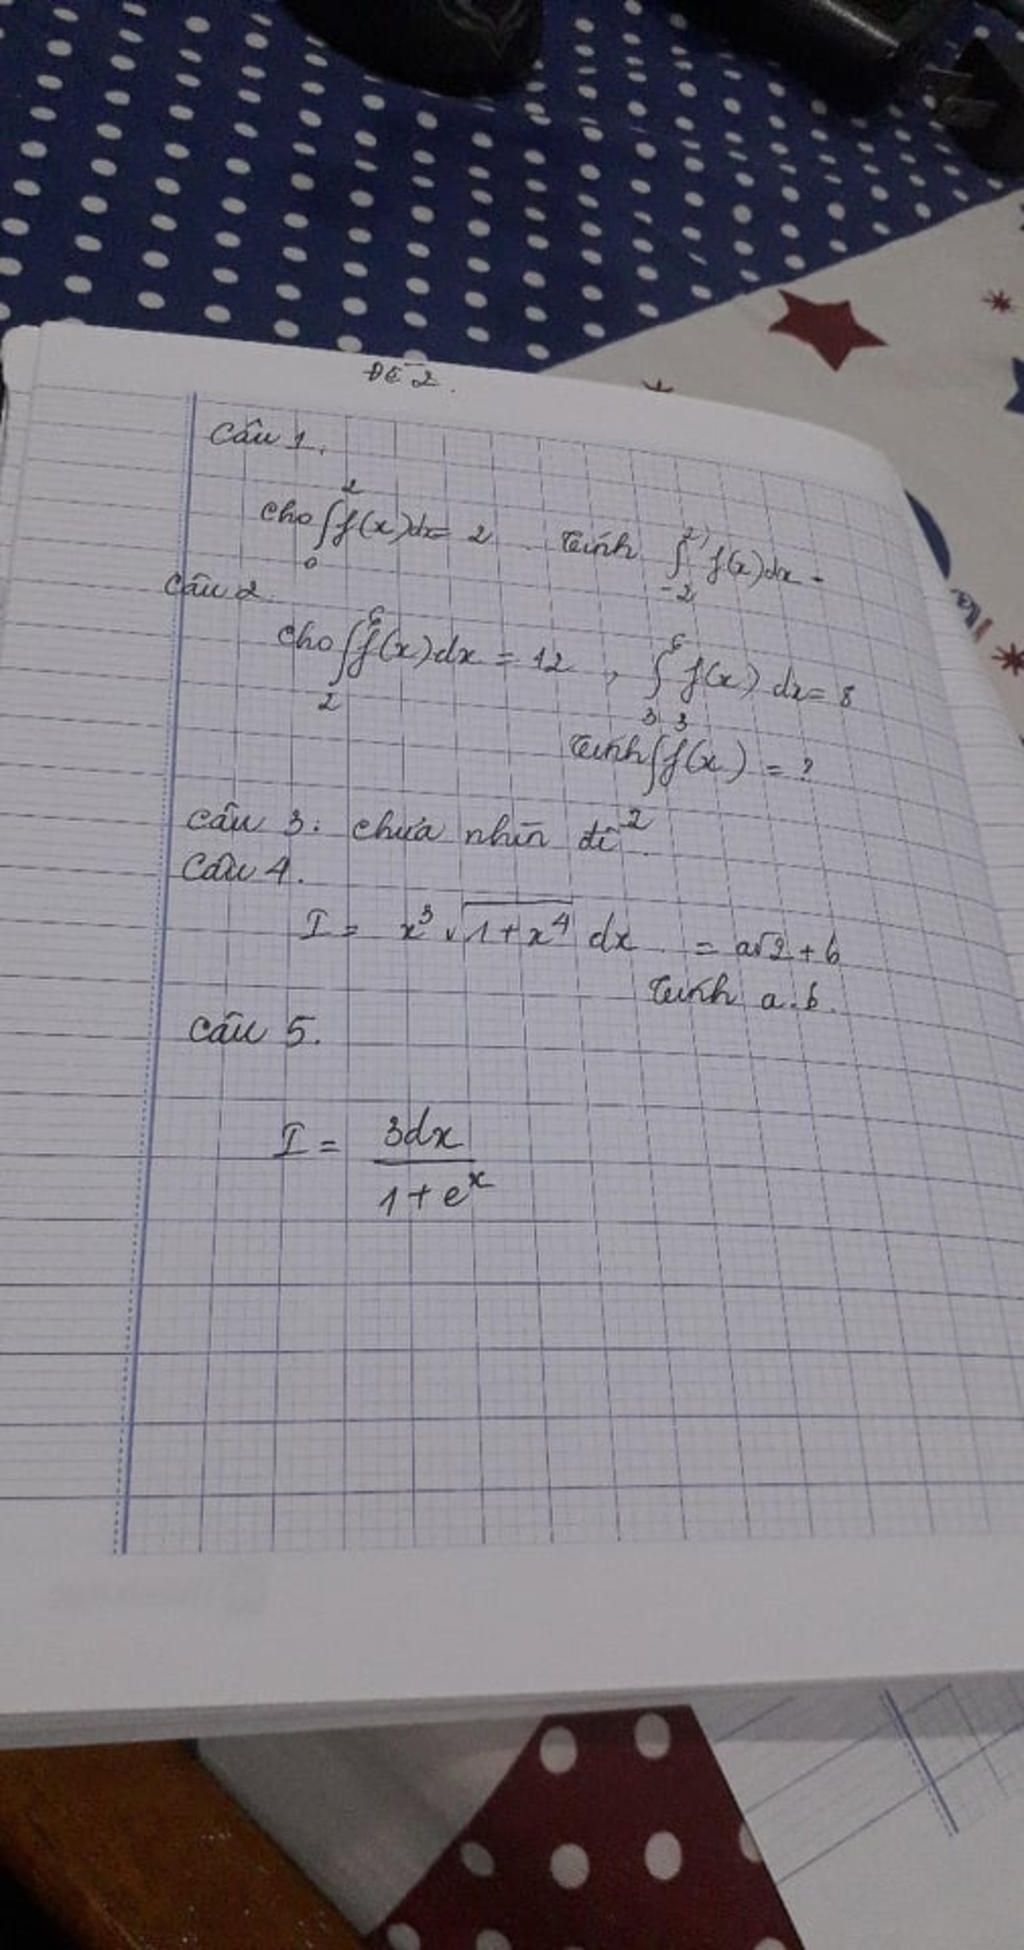 ĐỀ 2.
Câu 1.
cho ∫₀² f(x)dx = 2 . Tính ∫₋₂² f(x)dx =
Câu 2.
cho ∫₂⁶ f(x)dx = 12 , ∫₃⁶ f(x) dx = 8
Tính ∫₂³ f(x) = ?
Câu 3: chưa nhìn đề
Câu 4.
I = x³ √(1+x⁴) dx = a√2 + b
Tính a.b.
Câu 5.
I = 3dx / (1+eˣ)